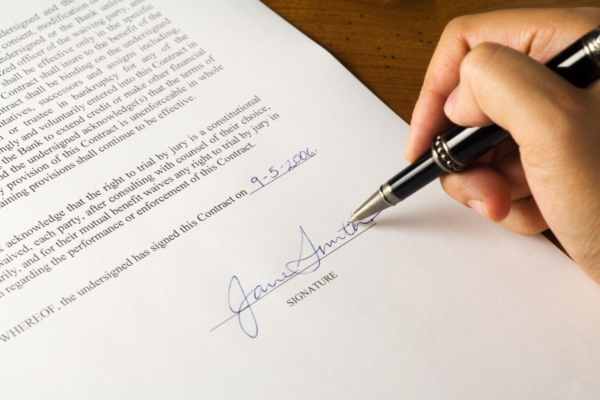 undersigned and this
consent, modification
undersigned or the Bank unless
officer of the waiving party, and
shall be effective only in the specific
Contract shall inure to the benefit of the
Contract shall be binding on the undersigned
successors and assigns including,
or trustee in bankruptcy for any of the
and voluntarily entered into this Contract in
the Bank to extend credit or make other financial
and the undersigned acknowledge(s) that the terms of
provision of this Contract is unenforceable in whole
remaining provisions shall continue to be effective.
acknowledge that the right to trial by jury is a constitutional
waived, each party, after consulting with counsel of their choice,
and for their mutual benefit waives any right to trial by jury in
regarding the performance or enforcement of this Contract.
WHEREOF, the undersigned has signed this Contract on 9-5-2006.
Jane Smith
SIGNATURE